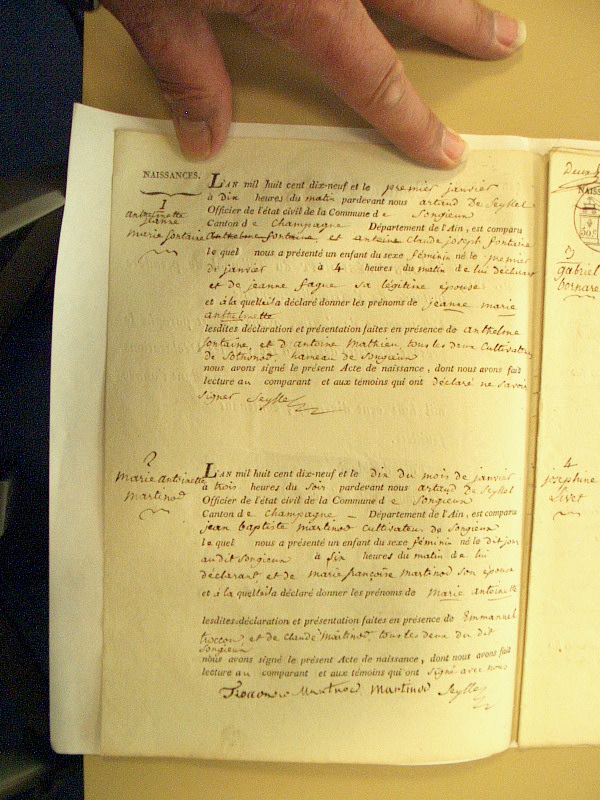 NAISSANCES.
1
anthelmette
jeanne
marie fontaine
L'AN mil huit cent dix-neuf et le premier janvier
à dix heures du matin pardevant nous artaud De Seyssel
Officier de l'état civil de la Commune de Songieux
Canton de Champagne Département de l'Ain, est comparu
anthelme fontaine et antoine Claude joseph fontaine
le quel nous a présenté un enfant du sexe féminin né le premier
de janvier à 4 heures du matin de lui déclarant
et de jeanne fague sa légitine épouse
et à la quelle il a déclaré donner les prénoms de jeanne marie
anthelmette
lesdites déclaration et présentation faites en présence de anthelme
fontaine, et d'antoine Mathieu, tous les deux Cultivateurs
de Sothonod, hameau de Songieux
nous avons signé le présent Acte de naissance, dont nous avons fait
lecture au comparant et aux témoins qui ont déclaré ne savoir
signer
2
Marie antoinette
Martinod
L'AN mil huit cent dix-neuf et le dix du mois de janvier
à trois heures du soir pardevant nous artaud de Seyssel
Officier de l'état civil de la Commune de Songieux
Canton de Champagne Département de l'Ain, est comparu
jean baptiste martinod Cultivateur de Songieux
le quel nous a présenté un enfant du sexe féminin né le dit jour
audit Songieux à six heures du matin de lui
déclarant et de marie françoise Martinod son épouse
et à la quelle il a déclaré donner les prénoms de Marie antoinette
lesdites déclaration et présentation faites en présence de Emmannel
et de Claude Martinod tous les deux du dit
Songieux
nous avons signé le présent Acte de naissance, dont nous avons fait
lecture au comparant et aux témoins qui ont signé avec nous
Martinod Martinod
NAISS
3
gabriel
4
josephine
Livet